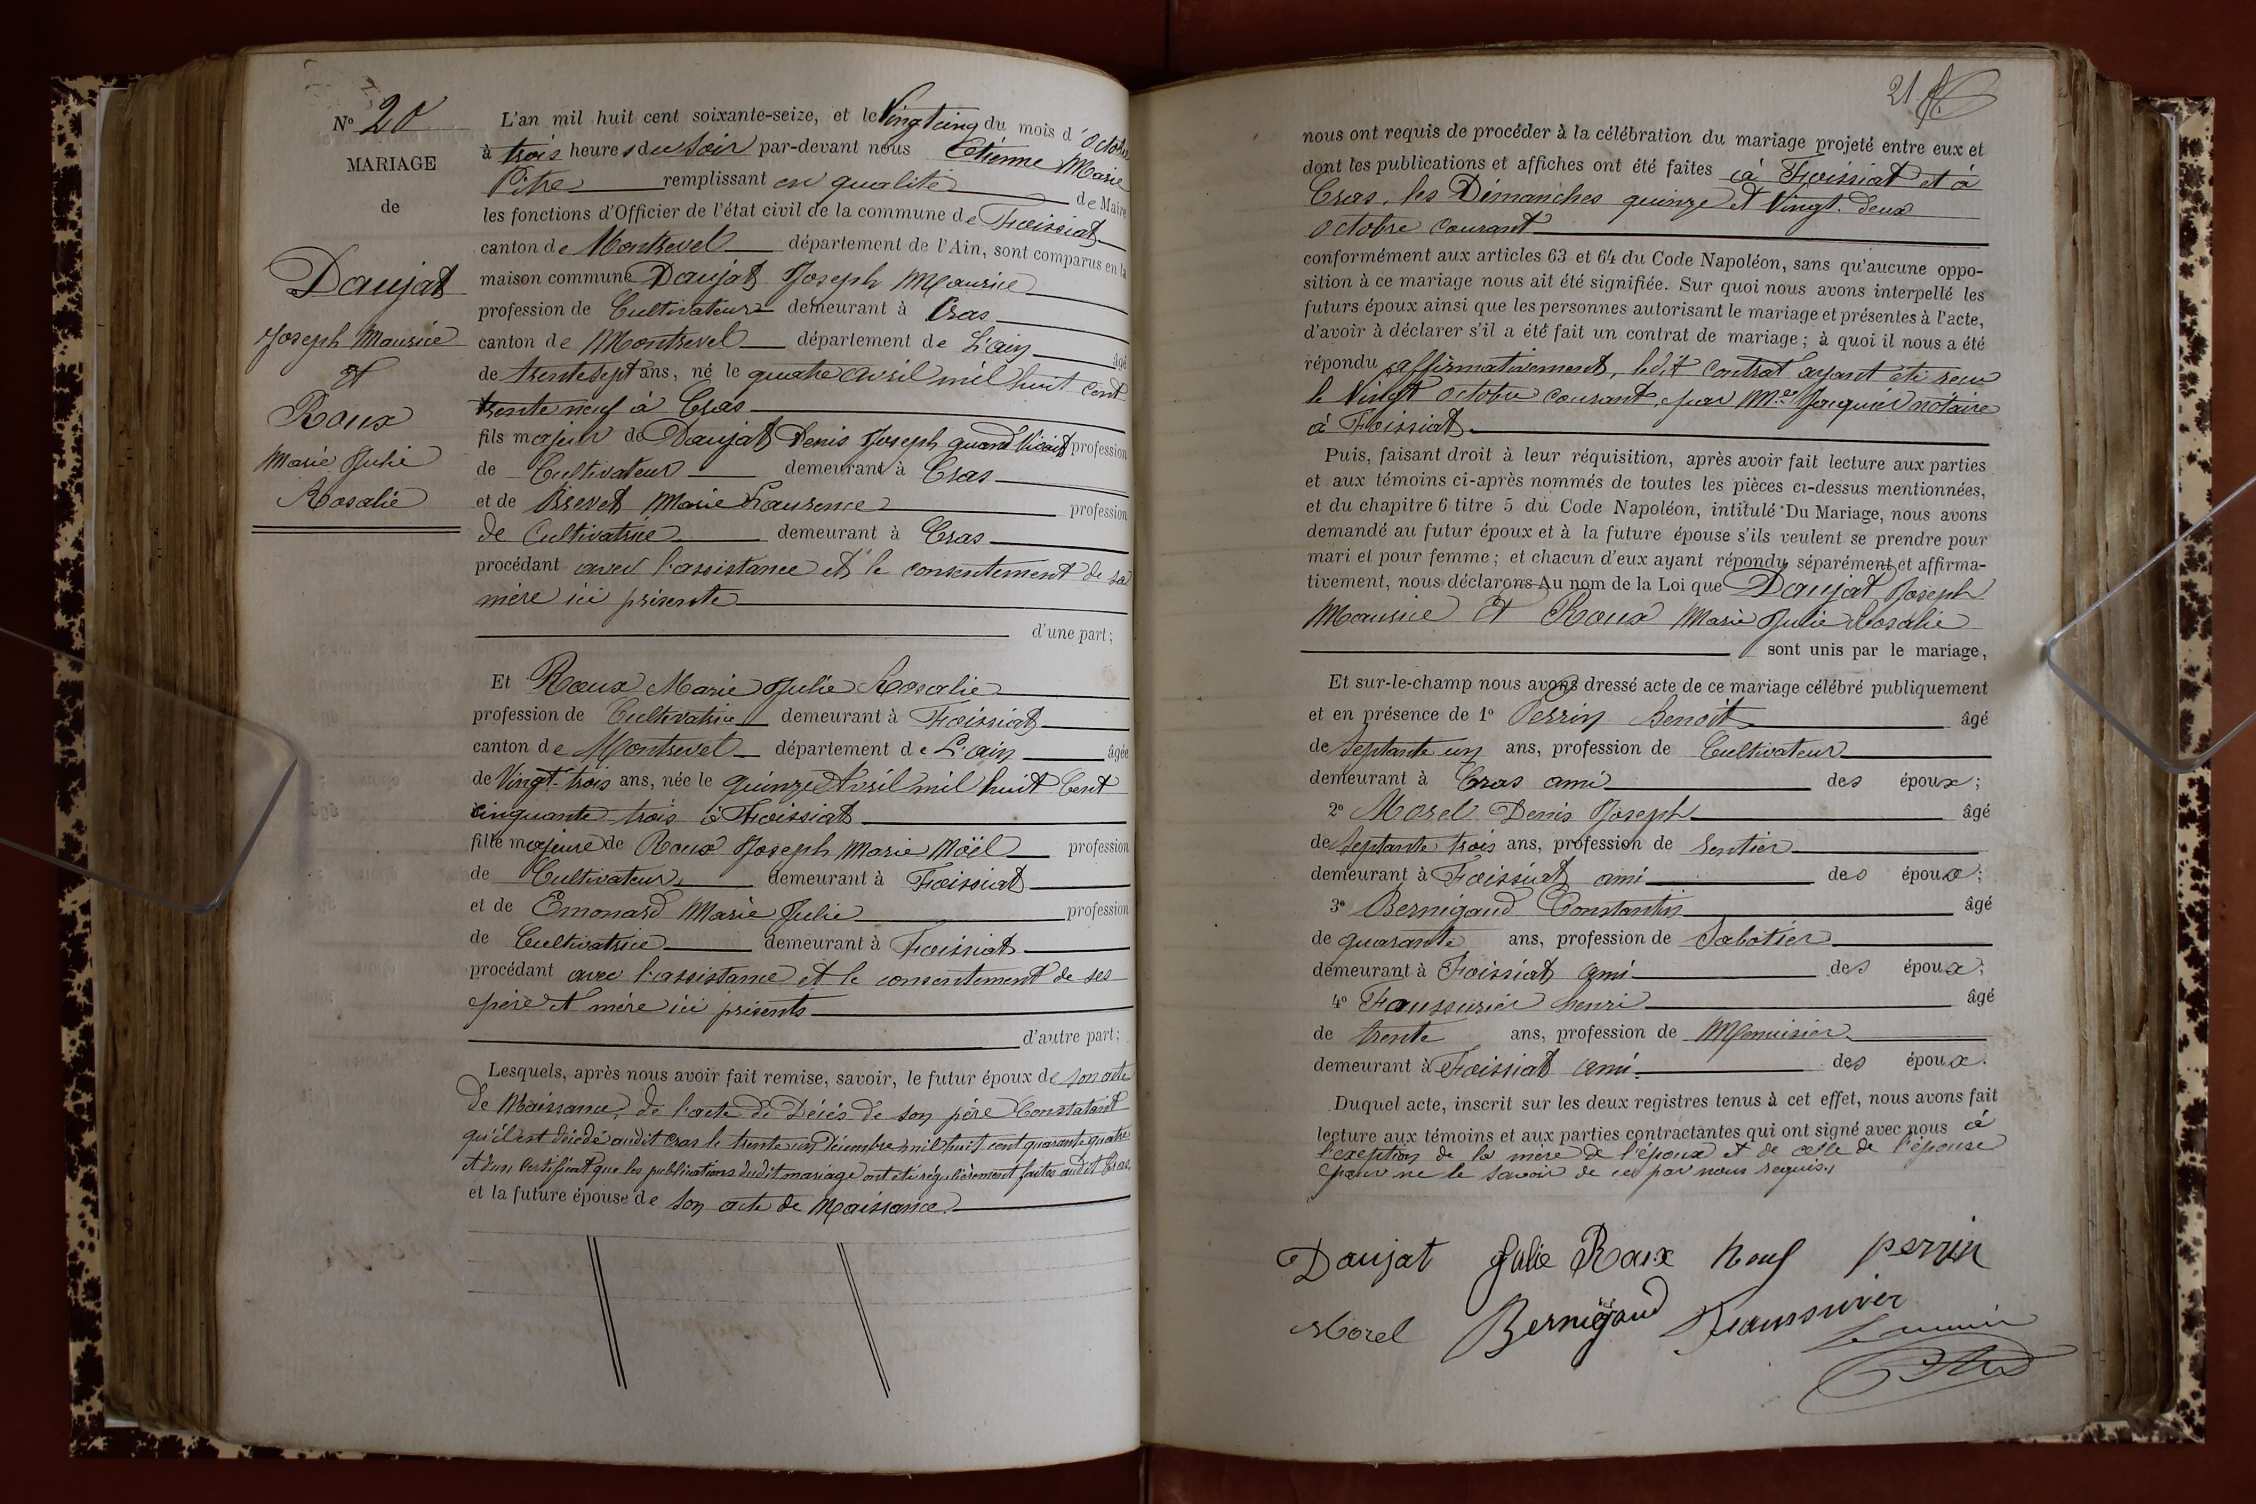 N° 20
MARIAGE
de
Daujat
Joseph Maurice
et
Roux
Marie Julie
Rosalie
L'an mil huit cent soixante-seize, et le Vingt cinq du mois d'Octobre
à trois heures du Soir par-devant nous Etienne Marie
Pitre remplissant en qualité de Maire
les fonctions d'Officier de l'état civil de la commune de Foissiat
canton de Montrevel département de l'Ain, sont comparus en la
maison commune Daujat Joseph Maurice
profession de Cultivateur demeurant à Cras
canton de Montrevel département de L'ain âgé
de trente sept ans, né le quatre avril mil huit cent
trente neuf à Cras
fils majeur de Daujat Denis Joseph quand Vivait profession
de Cultivateur demeurant à Cras
et de Brevet Marie Laurence profession
de Cultivatrice demeurant à Cras
procédant avec l'assistance et le consentement de sa
mère ici présente
d'une part;
Et Roux Marie Julie Rosalie
profession de Cultivatrice demeurant à Foissiat
canton de Montrevel département de L'ain âgée
de Vingt-trois ans, née le quinze Avril mil huit Cent
cinquante trois à Foissiat
fille majeure de Roux Joseph Marie Noël profession
de Cultivateur demeurant à Foissiat
et de Emonard Marie Julie profession
de Cultivatrice demeurant à Foissiat
procédant avec l'assistance et le consentement de ses
père et mère ici présents
d'autre part;
Lesquels, après nous avoir fait remise, savoir, le futur époux de son acte
de Naissance, de l'acte de Décès de son père Constatant
qu'il est décédé audit Cras le trente un Décembre mil huit cent quarante quatre
et d'un Certificat que les publications dudit mariage ont été régulièrement faites audit Cras,
et la future épouse de son acte de Naissance.
21
nous ont requis de procéder à la célébration du mariage projeté entre eux et
dont les publications et affiches ont été faites à Foissiat et à
Cras, les Dimanches quinze et Vingt-deux
octobre courant
conformément aux articles 63 et 64 du Code Napoléon, sans qu'aucune oppo-
sition à ce mariage nous ait été signifiée. Sur quoi nous avons interpellé les
futurs époux ainsi que les personnes autorisant le mariage et présentes à l'acte,
d'avoir à déclarer s'il a été fait un contrat de mariage; à quoi il nous a été
répondu affirmativement, ledit Contrat ayant été reçu
le Vingt octobre courant, par Me Jacquier notaire
à Foissiat
Puis, faisant droit à leur réquisition, après avoir fait lecture aux parties
et aux témoins ci-après nommés de toutes les pièces ci-dessus mentionnées,
et du chapitre 6 titre 5 du Code Napoléon, intitulé Du Mariage, nous avons
demandé au futur époux et à la future épouse s'ils veulent se prendre pour
mari et pour femme; et chacun d'eux ayant répondu séparément et affirma-
tivement, nous déclarons Au nom de la Loi que Daujat Joseph
Maurice et Roux Marie Julie Rosalie
sont unis par le mariage,
Et sur-le-champ nous avons dressé acte de ce mariage célébré publiquement
et en présence de 1° Perrin benoît âgé
de Septante un ans, profession de Cultivateur
demeurant à Cras ami des époux;
2° Morel Denis Joseph âgé
de Septante trois ans, profession de rentier
demeurant à Foissiat ami des époux;
3° Bernigaud Constantin âgé
de quarante ans, profession de Sabotier
demeurant à Foissiat ami des époux;
4° Faussurier henri âgé
de trente ans, profession de Menuisier
demeurant à Foissiat ami des époux.
Duquel acte, inscrit sur les deux registres tenus à cet effet, nous avons fait
lecture aux témoins et aux parties contractantes qui ont signé avec nous à
l'exeption de la mère de l'époux et de celle de l'épouse
pour ne le savoir de ce par nous requis.
Daujat Julie Roux perrin
Morel Bernigaud